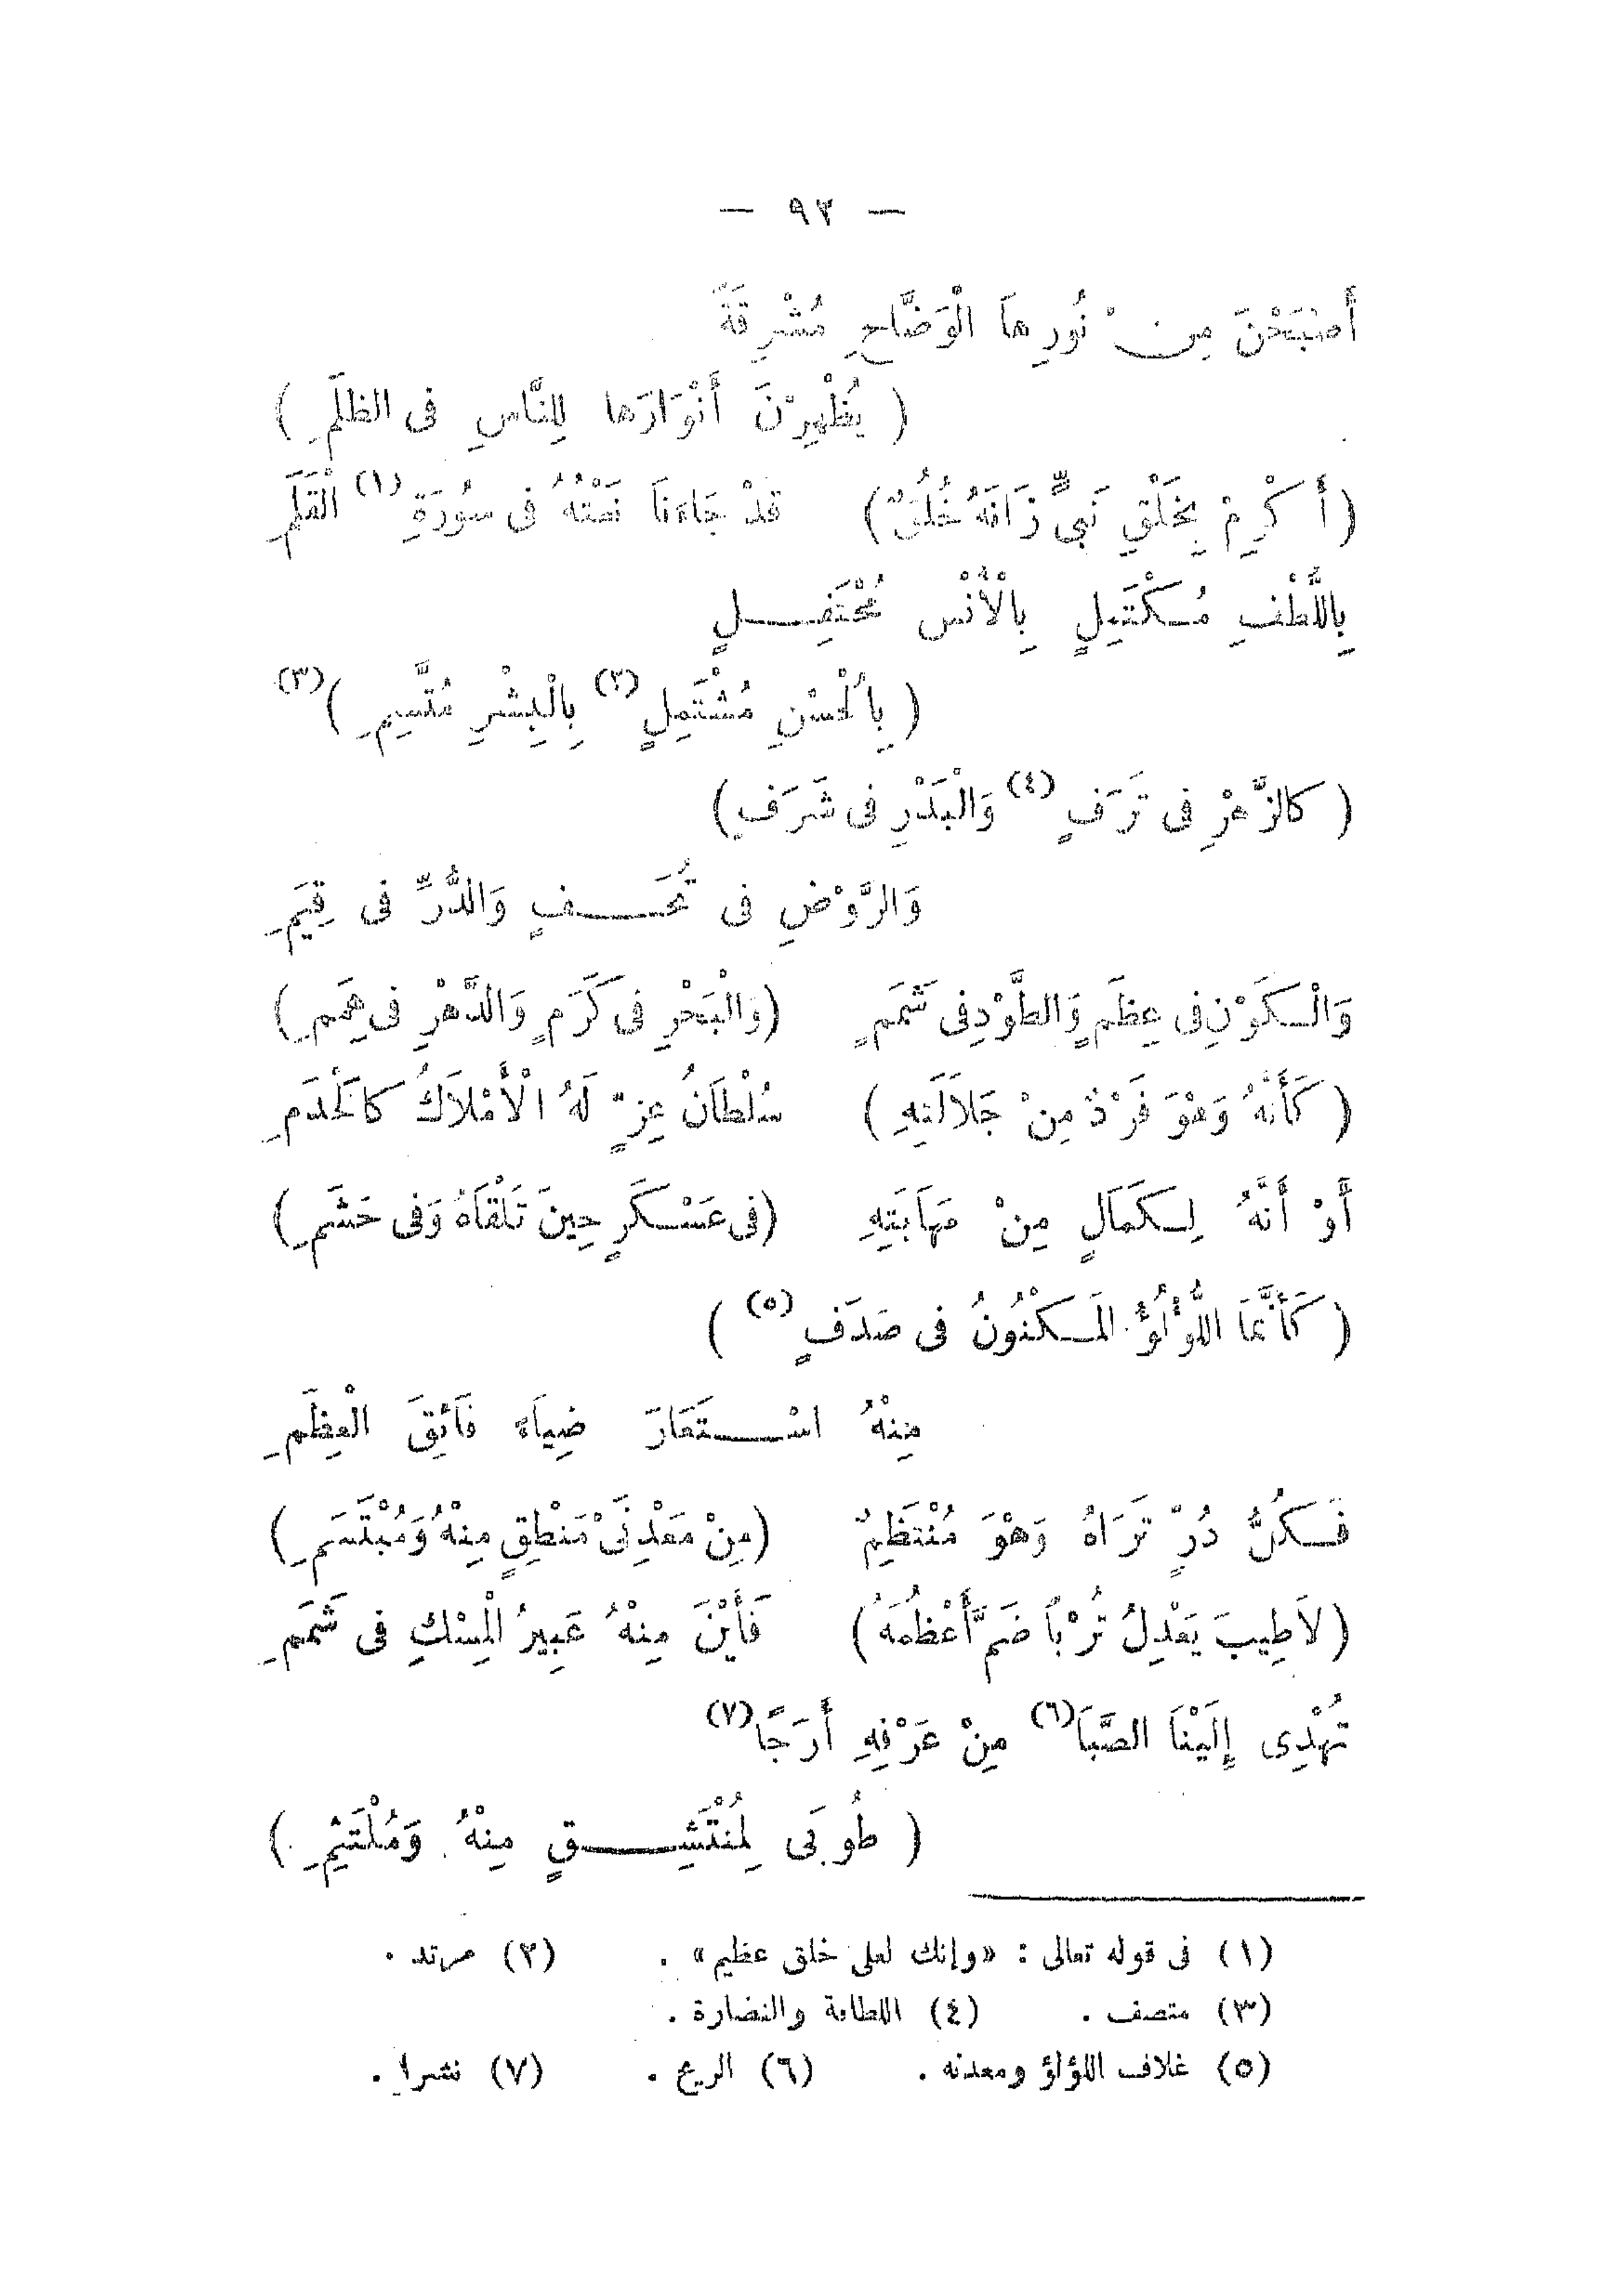 — ٩٣ —
أَصْبَحْنَ مِنْ نُورِهاَ الْوَضَّاحِ مُشْرِقَةً
( يُظْهِرْنَ أَنْوَارَها لِلنَّاسِ فى الظلَمِ )
(أَكْرِمْ بِخَلْقِ نَبِىٍّ زَانَهُ خُلُقٌ) قَدْ جَاءَناَ نَعْتُهُ فى سُورَةِ (١) الْقَلَمِ
بِاللَّطْفِ مُكْتَمِلٍ بِالْأُنْسِ مُحْتَفِلٍ
( بِالْحُسْنِ مُشْتَمِلٍ (٢) بِالْبِشْرِ مُتَّسِمِ ) (٣)
( كالزَّهْرِ فى تَرَفٍ (٤) وَالْبَدْرِ فى شَرَفٍ)
وَالرَّوْضِ فى تُحَفٍ وَالدُّرِّ فى قِيَمِ
وَالْكَوْنِ فى عِظَمٍ وَالطَّوْدِ فى شَمَمٍ (وَالْبَحْرِ فى كَرَمٍ وَالدَّهْرِ فى هِمَمِ)
( كَأَنَّهُ وَهْوَ فَرْدٌ مِنْ جَلاَلَتِهِ ) سُلْطَانُ عِزٍّ لَهُ الْأَمْلاَكُ كالْخَدَمِ
أَوْ أَنَّهُ لِكَمَالٍ مِنْ مَهَابَتِهِ (فى عَسْكَرٍ حِينَ تَلْقاَهُ وَفى حَشَمِ)
( كَأَنَّمَا اللُّؤْلُؤُ الْمَكْنُونُ فى صَدَفٍ (٥) )
مِنْهُ اسْتَعَارَ ضِيَاءً فَائِقَ الْعِظَمِ
فَكُلُّ دُرٍّ تَرَاهُ وَهْوَ مُنْتَظِمٌ (مِنْ مَعْدِنَىْ مَنْطِقٍ مِنْهُ وَمُبْتَسَمِ)
(لاَطِيبَ يَعْدِلُ تُرْباً ضَمَّ أَعْظُمَهُ) فَأَيْنَ مِنْهُ عَبِيرُ الْمِسْكِ فى شَمَمِ
تُهْدِى إِلَيْنَا الصَّبَا (٦) مِنْ عَرْفِهِ أَرَجًا (٧)
( طُوبَى لِمُنْتَشِقٍ مِنْهُ وَمُلْتَثِمِ )
(١) فى قوله تعالى : «وإنك لعلى خلق عظيم» . (٢) مرتد .
(٣) متصف . (٤) اللطافة والنضارة .
(٥) غلاف اللؤلؤ ومعدنه . (٦) الريح . (٧) نشرا .